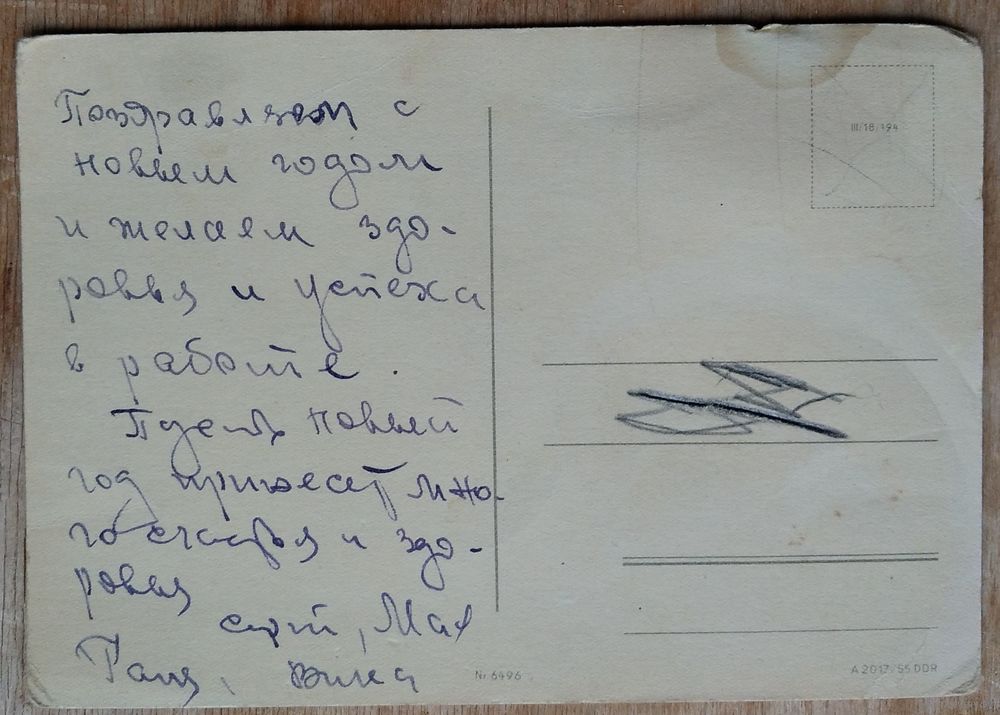 Поздравляем с
новым годом
и желаем здо-
ровья и успеха
в работе.
Пусть новый
год принесет мно-
го счастья и здо-
ровья
Мая
Галя,
III/18/194
Nr 6496
A 2017/55 DDR